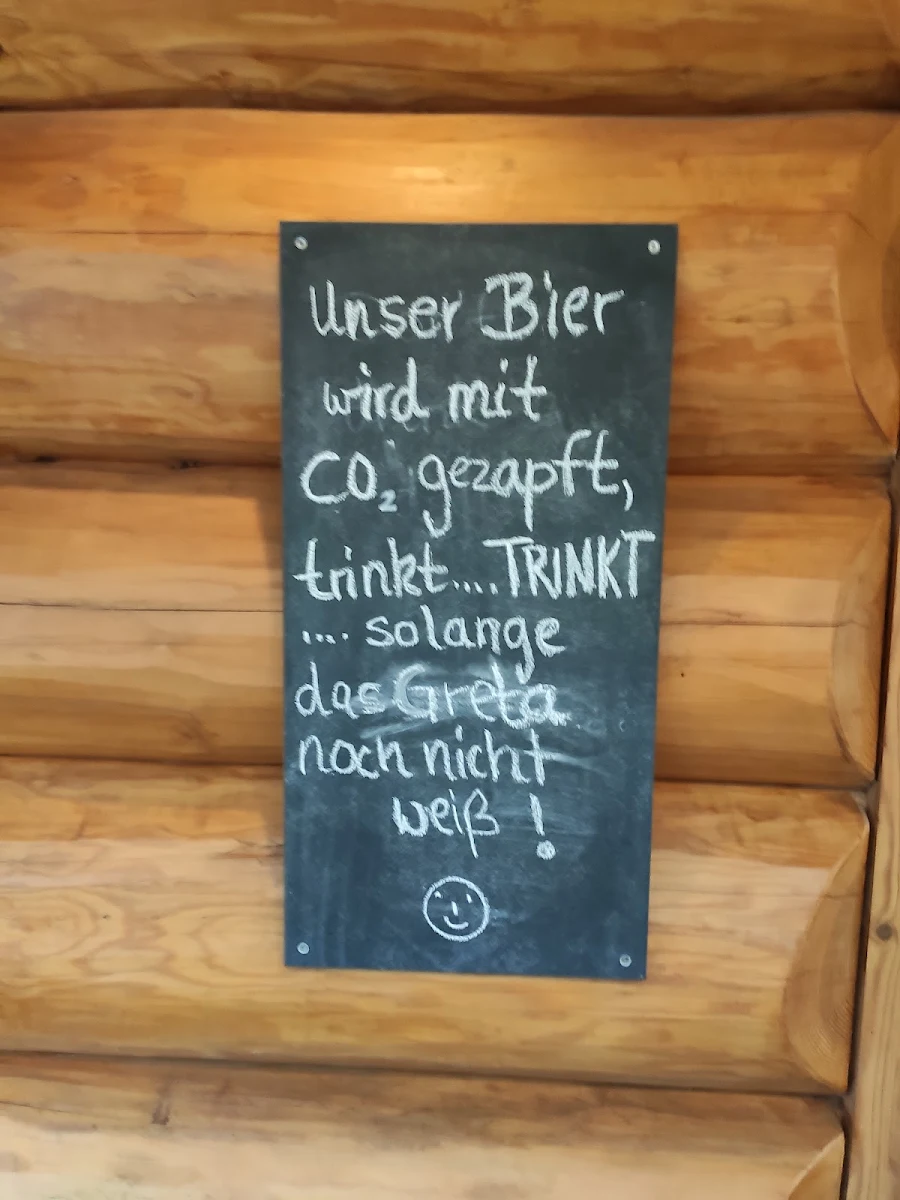 Unser Bier
wird mit
CO₂ gezapft,
trinkt....TRINKT
.... solange
das Greta
noch nicht
weiß !